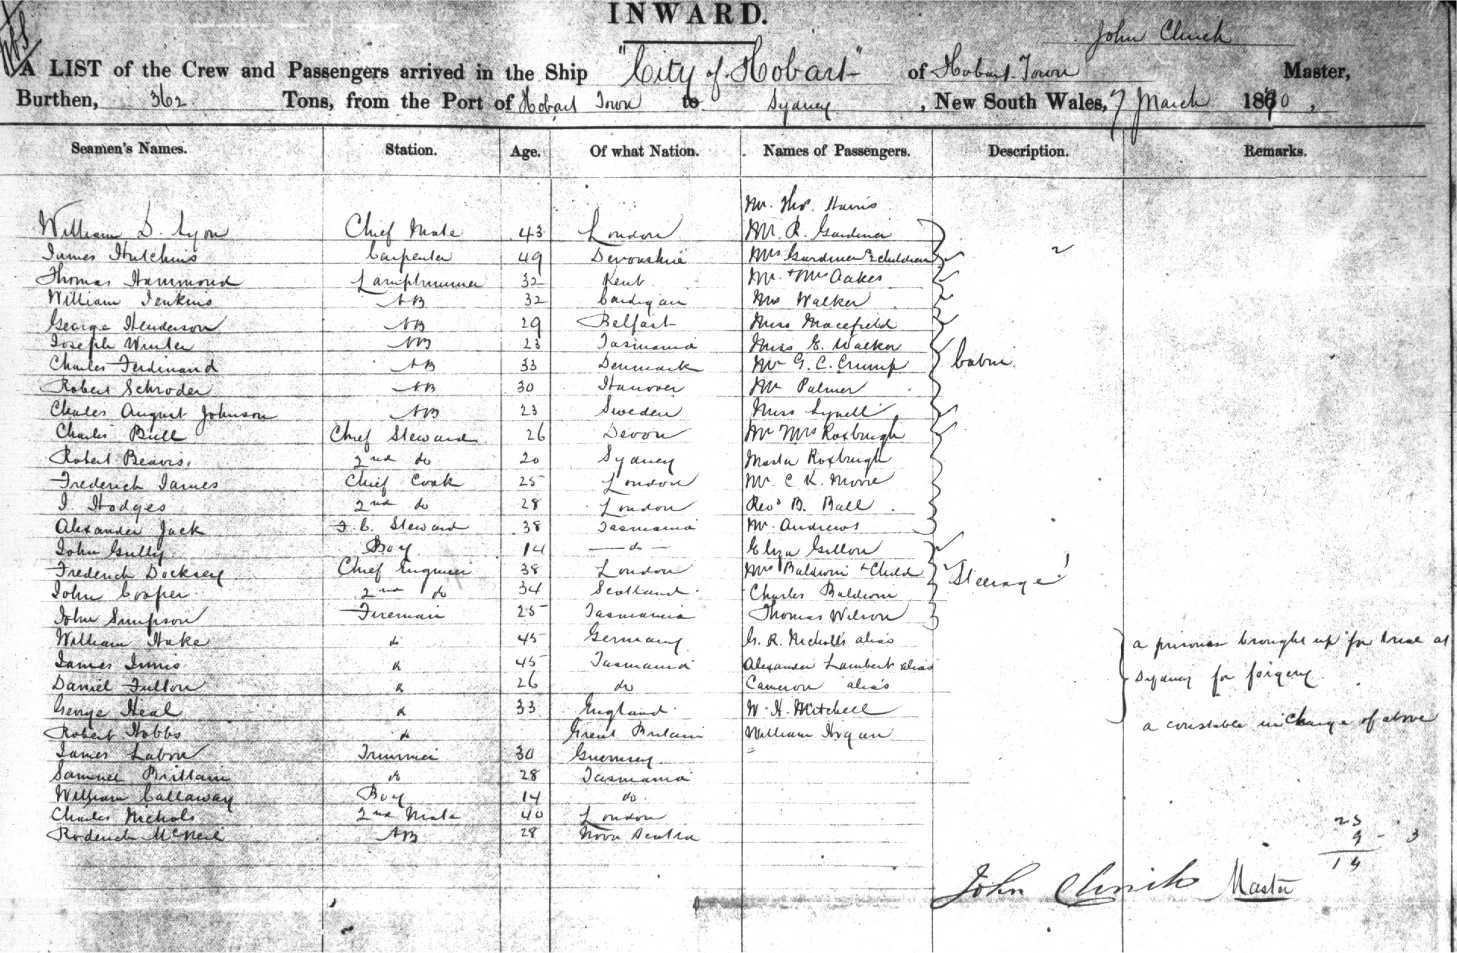 INWARD.
John Clinch
A LIST of the Crew and Passengers arrived in the Ship "City of Hobart" of Hobart Town Master,
Burthen, 362 Tons, from the Port of Hobart Town to Sydney, New South Wales, 7 March 1870,
Seamen's Names. Station. Age. Of what Nation. Names of Passengers. Description. Remarks.
Mr. Thos. Harris
William D. Lyon Chief Mate 43 London Mr. R. Gardiner
James Hutchins Carpenter 49 Devonshire Mrs Gardiner 2 children
Thomas Hammond Lamptrimmer 32 Kent Mr. + Mrs Oakes
William Jenkins AB 32 Cardigan Mrs Walker
George Henderson AB 29 Belfast Miss Macefield
Joseph Winter AB 23 Tasmania Miss E. Walker
Charles Ferdinand AB 33 Denmark Mr G. C. Crump Cabin.
Robert Schroder AB 30 Hanover Mr Palmer
Charles August Johnson AB 23 Sweden Miss
Charles Bull Chief Steward 26 Devon Mr Mrs Roxburgh
Robert Beavis. 2nd do 20 Sydney Master Roxburgh
Frederick James Chief Cook 25 London Mr. C K. Moore
J Hodges 2nd do 28 London Revd B. Ball
Alexander Jack F. C. Steward 38 Tasmania Mr. Andrews
John Gully Boy 14 — do — Eliza Gillon
Frederick Docksey Chief Engineer 38 London Mrs Baldwin + Child
John Cooper 2nd do 34 Scotland Charles Baldwin Steerage
John Simpson Fireman 25 Tasmania Thomas Wilson
William Hake do 45 Germany G. R. Nicholls alias a prisoner brought up for trial at
James Innis do 45 Tasmania Alexander Lambert alias
Daniel Fulton do 26 do Cameron alias Sydney for forgery
George Heal do 33 England. W. H. Mitchell
Robert Hobbs do Great Britain William Hogan a constable in charge of above
James Labon Trimmer 30 Guernsey
Samuel Brittain do 28 Tasmania
William Callaway Boy 14 do.
Charles Nichols 2nd Mate 40 London
Roderick McNeil AB 28 Nova Scotia
23
9 - 3
14
John Clinch Master